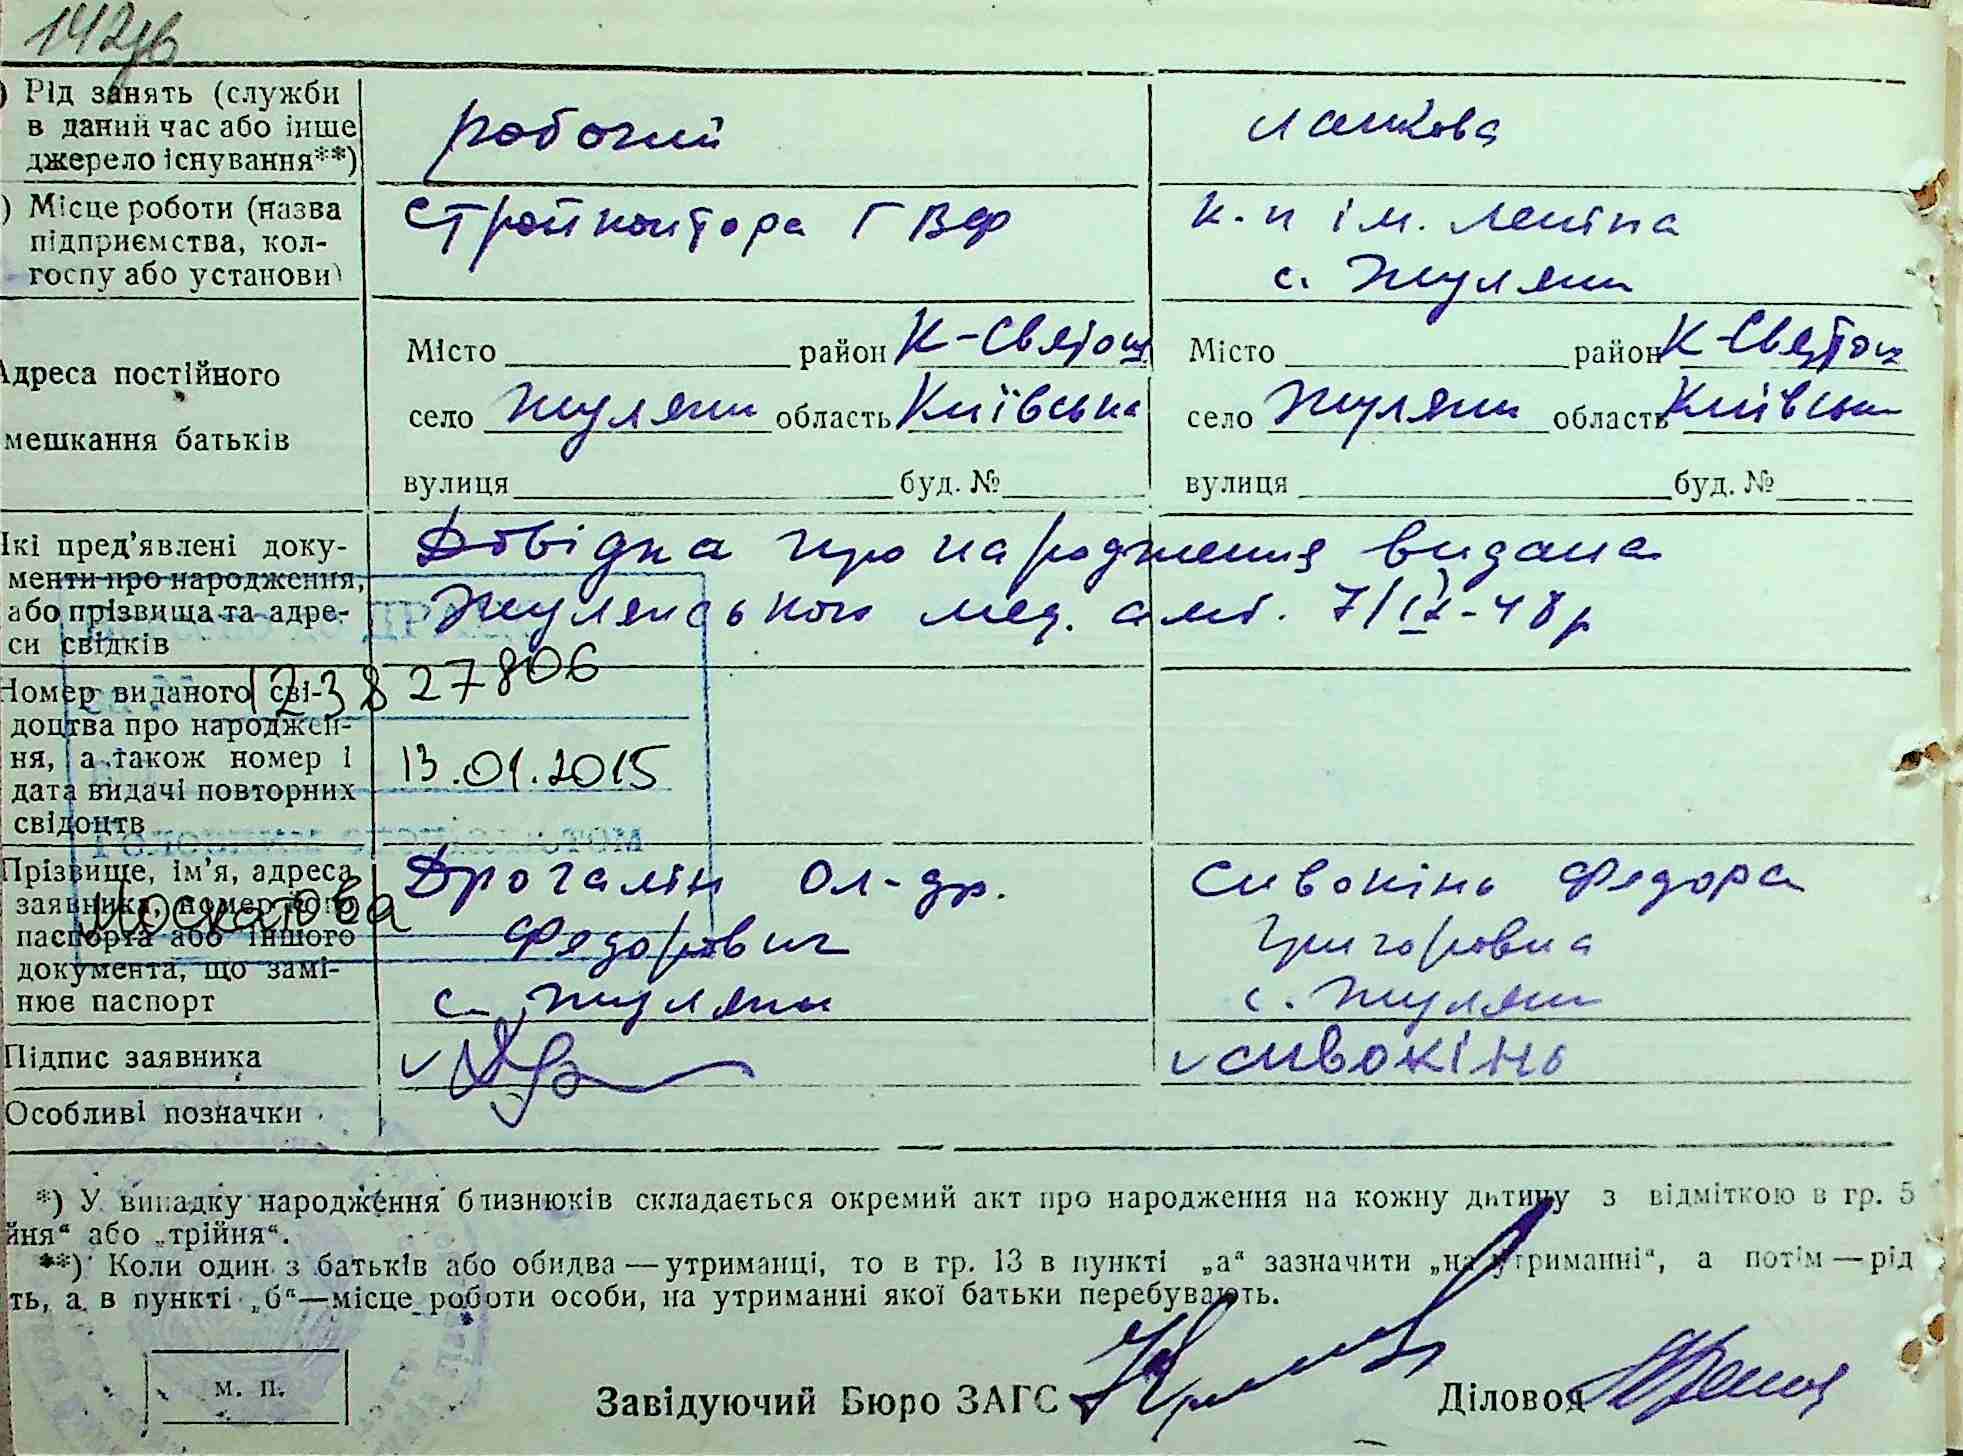 142зв
) Рід занять (служби
в даний час або інше
джерело існування**)
робочий
ланкова
) Місце роботи (назва
підприємства, кол-
госпу або установи)
Стройконтора ГВФ
к-п ім. Леніна
с. Жуляни
Адреса постійного
мешкання батьків
Місто район К-Святош
село Жуляни область Київська
вулиця буд. №
Місто район К-Святош
село Жуляни область Київськ
вулиця буд. №
Які пред'явлені доку-
менти про народження,
або прізвища та адре-
си свідків
Довідка про народження видана
Жулянською мед. амб. 7/IX-48р
Номер виданого сві-
доцтва про народжен-
ня, а також номер і
дата видачі повторних
свідоцтв
1238 27806
13.01.2015
Прізвище, ім'я, адреса
заявника, номер його
паспорта або іншого
документа, що замі-
нює паспорт
Дрогалін Ол-др.
Федорович
с. Жуляни
Сивокінь Федора
Григоровна
с. Жуляни
Підпис заявника
Сивокінь
Особливі позначки
*) У випадку народження близнюків складається окремий акт про народження на кожну дитину з відміткою в гр. 5
йня" або „трійня".
**) Коли один з батьків або обидва — утриманці, то в гр. 13 в пункті „а" зазначити „на утриманні", а потім — рід
ть, а в пункті „б"—місце роботи особи, на утриманні якої батьки перебувають.
м. п.
Завідуючий Бюро ЗАГС
Діловод